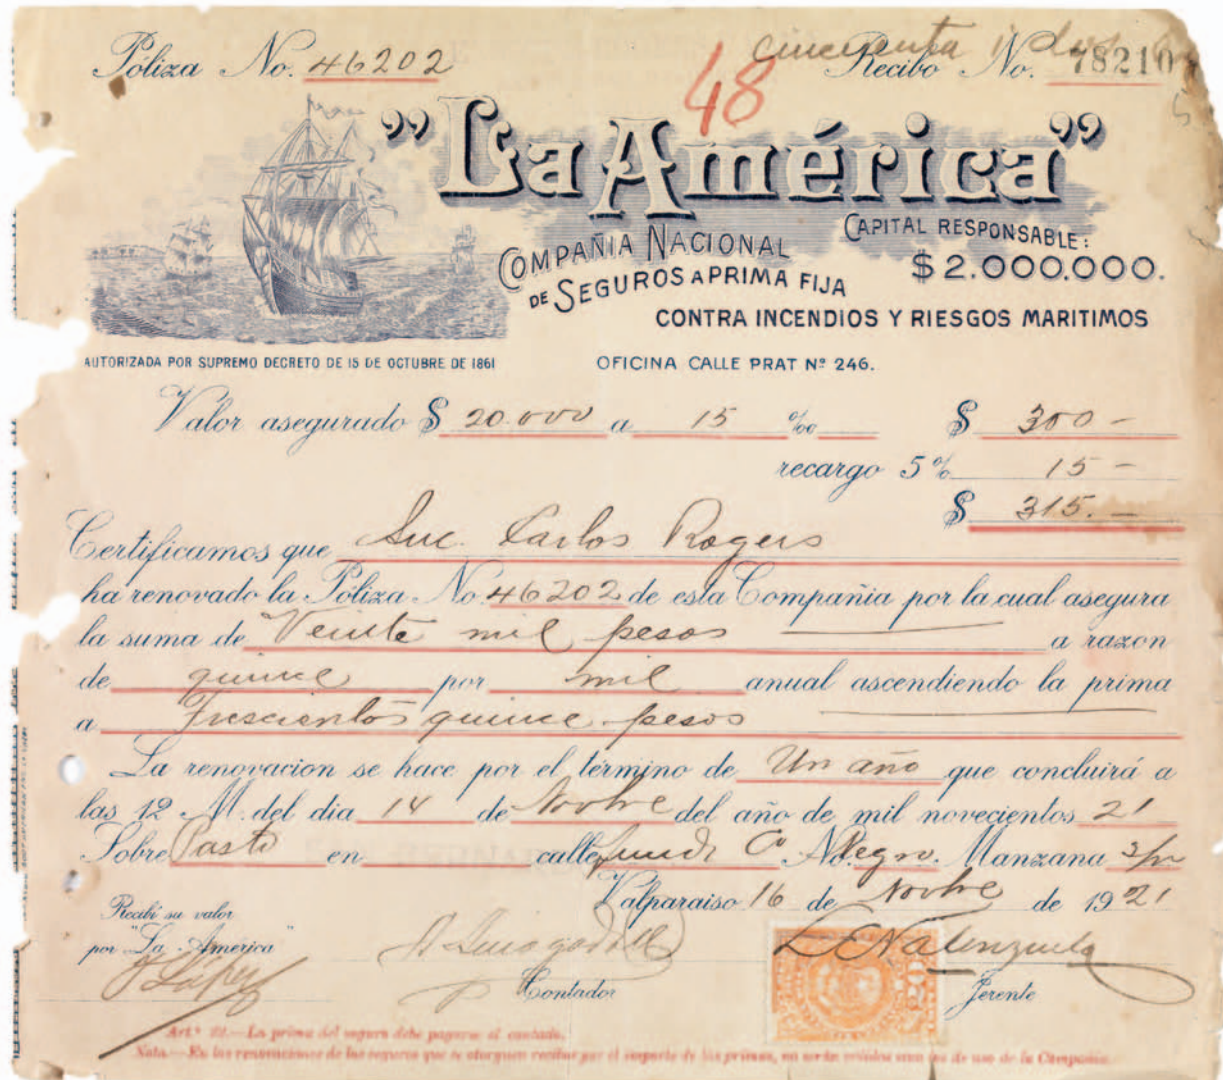 Póliza No. 46202
48
cincuenta i dos
Recibo No. 78210
"La América"
COMPAÑIA NACIONAL
DE SEGUROS A PRIMA FIJA
CAPITAL RESPONSABLE:
$ 2.000.000.
CONTRA INCENDIOS Y RIESGOS MARITIMOS
AUTORIZADA POR SUPREMO DECRETO DE 15 DE OCTUBRE DE 1861
OFICINA CALLE PRAT Nº 246.
Valor asegurado $ 20.000 a 15 ‰ $ 300-
recargo 5% 15-
$ 315.-
Certificamos que Suc. Carlos Rogers
ha renovado la Póliza No. 46202 de esta Compañia por la cual asegura
la suma de Veinte mil pesos a razon
de quince por mil anual ascendiendo la prima
a Trescientos quince pesos
La renovacion se hace por el término de Un año que concluirá á
las 12 M. del dia 14 de Novbre del año de mil novecientos 21
Sobre Pasto en calle No. Negro. Manzana
Valparaiso 16 de Novbre de 1921
Recibí su valor
por "La América"
J López
L E Valenzuela
Contador
Jerente
Art.º 22.—La prima del seguro debe pagarse al contado.
Nota.—En las renovaciones de los seguros que se otorguen recibo por el importe de las primas, no serán válidos de uso de la Compañia.